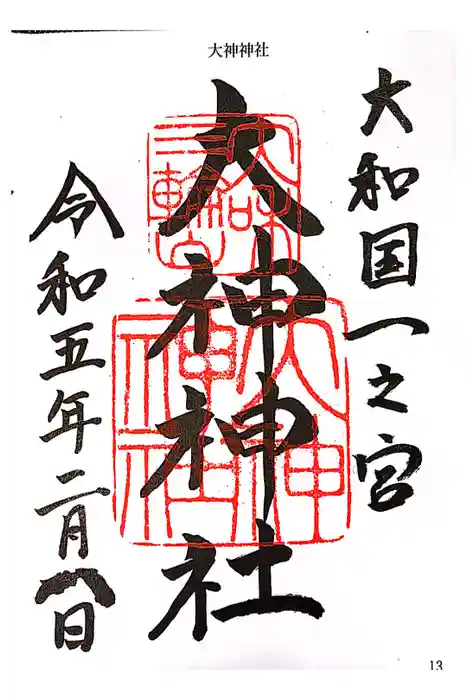 大神神社
大和国一之宮
大神神社
令和五年二月八日
大神
神社
13